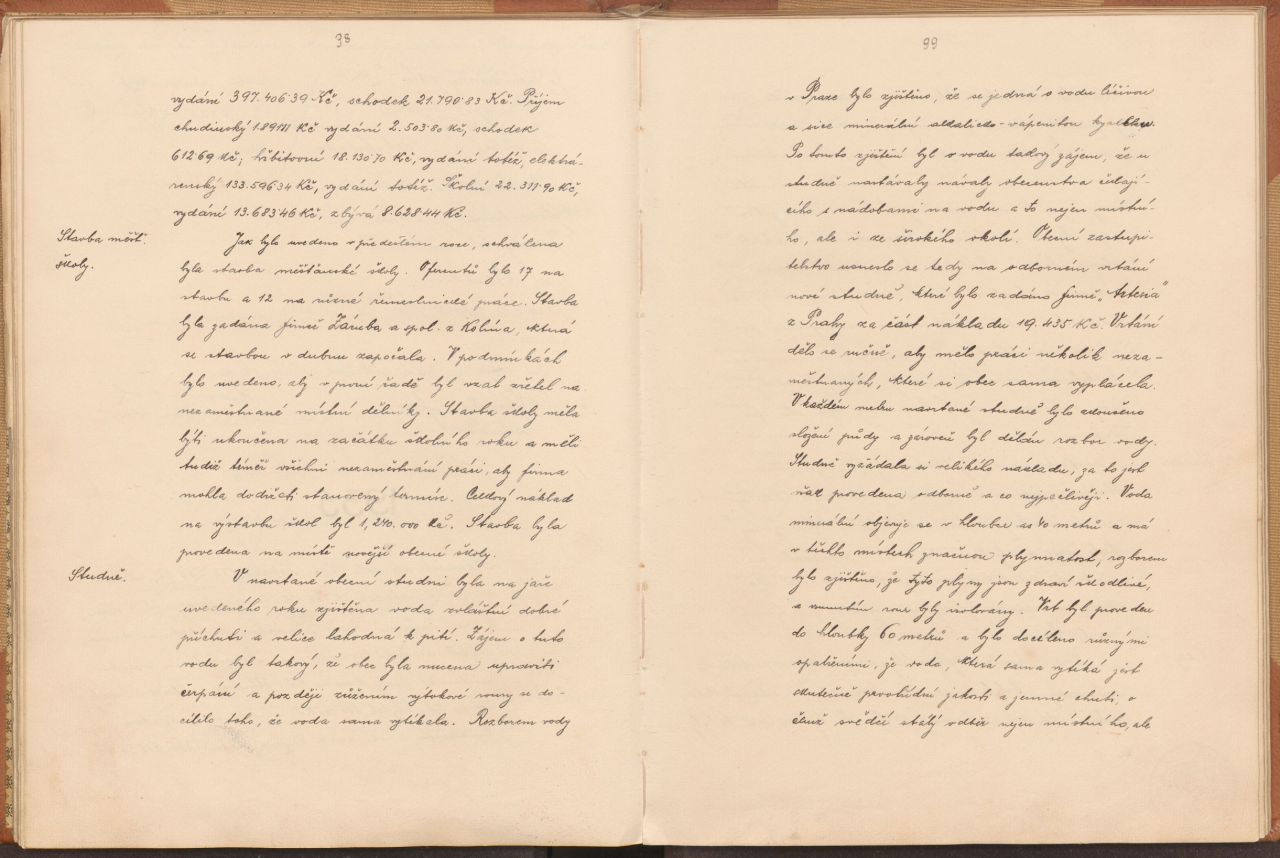 38
vydání 397.406·39 Kč, schodek 21.790·83 Kč. Příjem
chudinský 1.891·11 Kč vydání 2.503·80 Kč, schodek
612·69 Kč; hřbitovní 18.130·70 Kč, vydání totéž, elektrá-
renský 133.596·34 Kč, vydání totéž. Školní 22.311·90 Kč,
vydání 13.683·46 Kč, zbývá 8.628·44 Kč.
Stavba měšť.
školy.
Jak bylo uvedeno v předešlém roce, schválena
byla stavba měšťanské školy. Oferentů bylo 17 na
stavbu a 12 na různé řemeslnické práce. Stavba
byla zadána firmě Záruba a spol. z Kolína, která
se stavbou v dubnu započala. V podmínkách
bylo uvedeno, aby v první řadě byl vzat zřetel na
nezaměstnané místní dělníky. Stavba školy měla
býti ukončena na začátku školního roku a měli
tudíž téměř všichni nezaměstnaní práci, aby firma
mohla dodržeti stanovený termín. Celkový náklad
na výstavbu škol byl 1,240.000 Kč. Stavba byla
provedena na místě novější obecné školy.
Studně.
V navrtané obecní studni byla na jaře
uvedeného roku zjištěna voda zvláštní dobré
příchuti a velice lahodná k pití. Zájem o tuto
vodu byl takový, že obec byla nucena upraviti
čerpání a později zúžením výtokové roury se do-
cílilo toho, že voda sama vytékala. Rozborem vody
99
v Praze bylo zjištěno, že se jedná o vodu léčivou
a sice minerální alkalicko-vápenitou kyselku.
Po tomto zjištění byl o vodu takový zájem, že u
studně nastávaly návaly obecenstva čekají-
cího s nádobami na vodu a to nejen místní-
ho, ale i ze širokého okolí. Obecní zastupi-
telstvo usneslo se tedy na odborném vrtání
nové studně, které bylo zadáno firmě „Artesia“
z Prahy za část nákladu 19.435 Kč. Vrtání
dělo se ručně, aby mělo práci několik neza-
městnaných, které si obec sama vyplácela.
V každém metru navrtané studně bylo zkoušeno
složení půdy a zároveň byl dělán rozbor vody.
Studně vyžádala si velikého nákladu, za to jest
však provedena odborně a co nejpečlivěji. Voda
minerální objevuje se v hloubce as 40 metrů a má
v těchto místech značnou plynnatost, rozborem
bylo zjištěno, že tyto plyny jsou zdraví škodlivé,
a rour byly isolovány. Vrt byl proveden
do hloubky 60 metrů a bylo docíleno různými
opatřeními, že voda, která sama vytéká jest
skutečně prvotřídní jakosti a jemné chuti, o
čemž svědčí stálý odběr nejen místního, ale